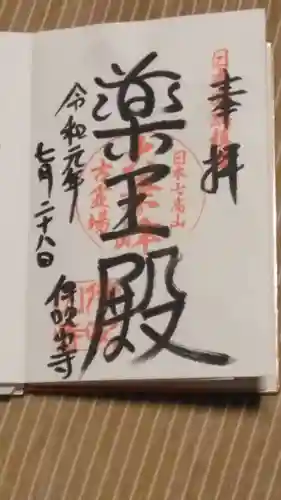 奉拝
薬王殿
日本七高山
令和元年
七月二十八日
伊吹山寺